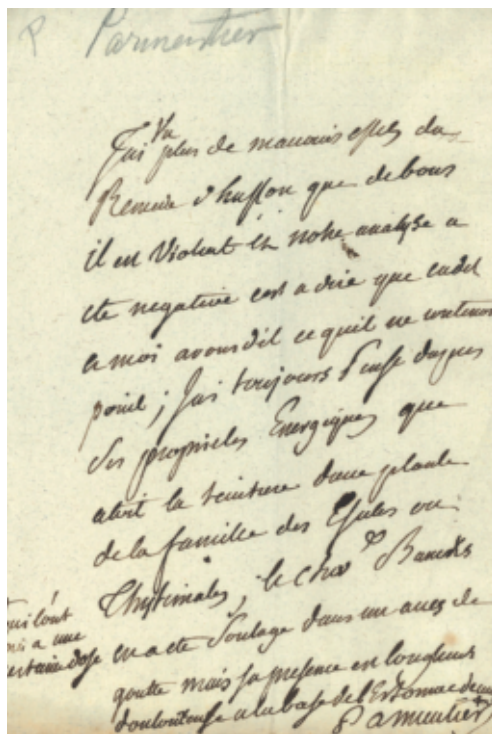 P Parmentier
J'ai vu plus de mauvais effets du
Remede d'husson que de bons
il est violent et notre analyse a
ete negative c'est a dire que cadet
et moi avons dit ce qu'il ne contenoit
point ; J'ai toujours pensé dapres
ses proprietes Energiques que
c'etoit la teinture d'une plante
de la famille des Esules ou
Thytimales, le cher
en a ete soulage dans un acces de
goutte mais sa presence est longtems
douloureuse a la base de l'Estomac
qui l'ont
a une
certaine dose
Parmentier